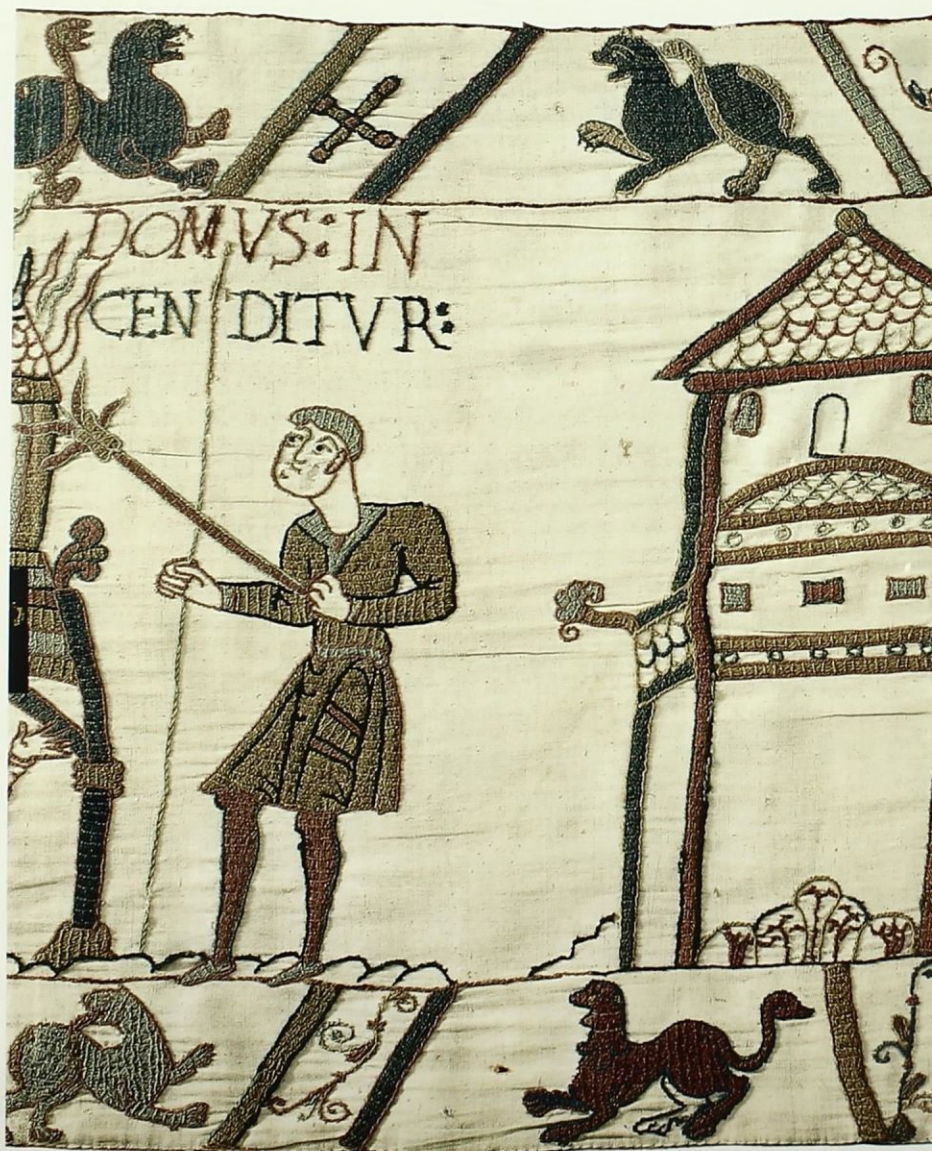 DOMVS:IN
CENDITVR: